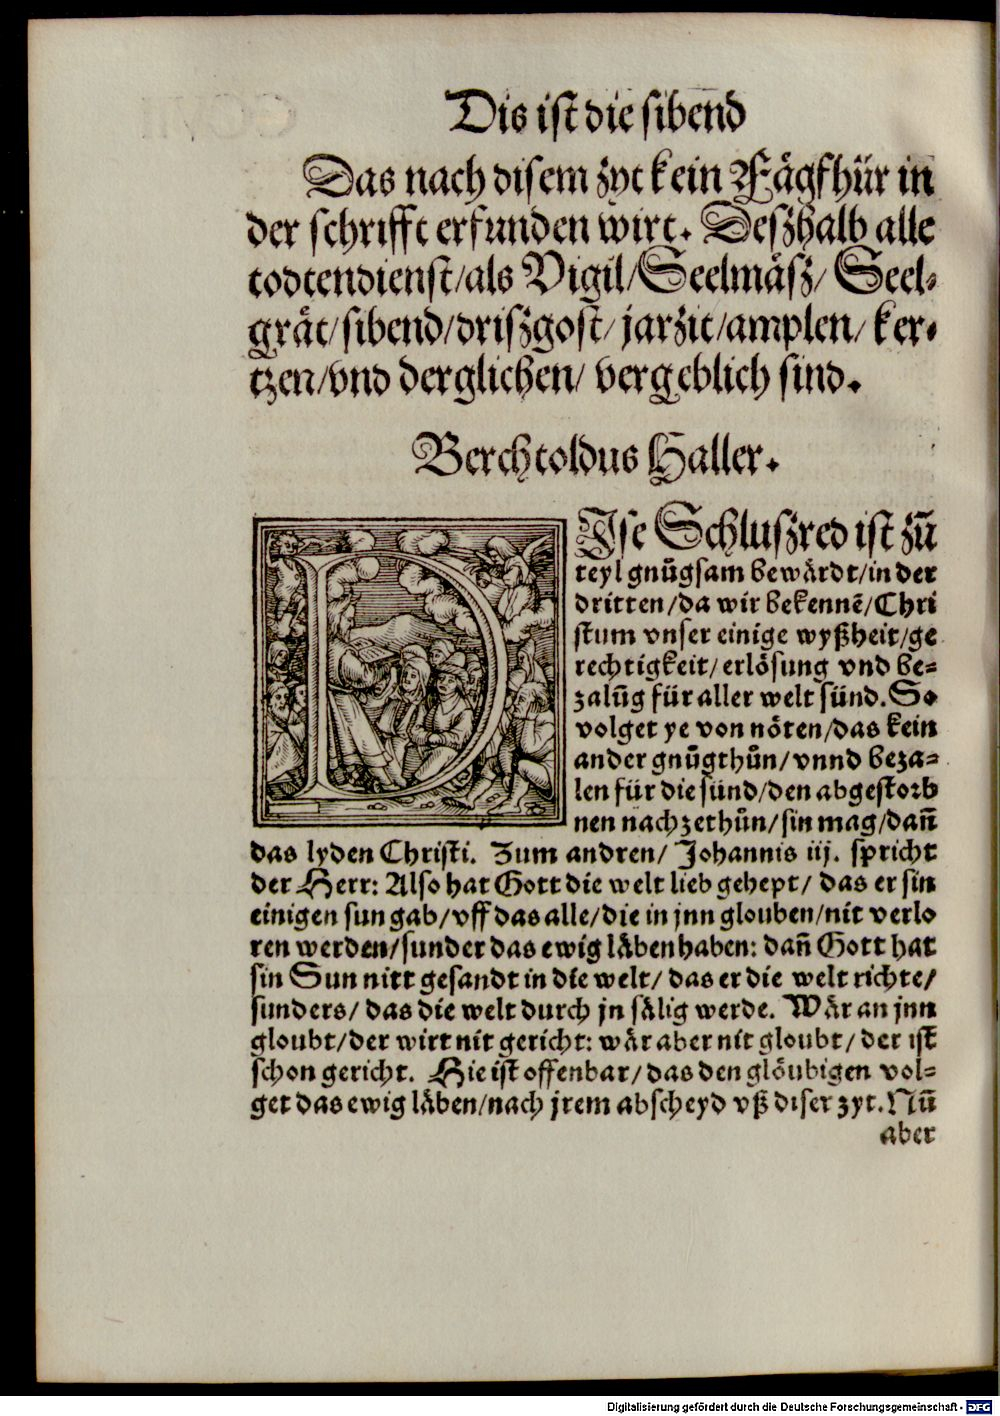 Dis ist die sibend
Das nach disem zyt kein Fägfhür in
der schrifft erfunden wirt. Deszhalb alle
todtendienst/als Vigil/Seelmäsz/ Seel-
grät/sibend/driszgost/ jarzit/amplen/ ker-
tzen/vnd derglichen/ vergeblich sind.
Berchtoldus Haller.
DIse Schluszred ist zů
teyl gnůgsam bewärdt/in der
dritten/da wir bekennē/Chri
stum vnser einige wyßheit/ge
rechtigkeit/erlösung vnd be-
zalūg für aller welt sünd. So
volget ye von nöten/das kein
ander gnůgthůn/vnnd beza-
len für die sünd/den abgestorb
nen nachzethůn/sin mag/dañ
das lyden Christi. Zum andren/ Johannis iij. spricht
der Herr: Also hat Gott die welt lieb gehept/ das er sin
einigen sun gab/vff das alle/die in jnn glouben/nit verlo
ren werden/sunder das ewig läben haben: dañ Gott hat
sin Sun nitt gesandt in die welt/ das er die welt richte/
sunders/ das die welt durch jn sälig werde. Wär an jnn
gloubt/der wirt nit gericht: wär aber nit gloubt/ der ist
schon gericht. Hie ist offenbar/das den glöubigen vol-
get das ewig läben/nach jrem abscheyd vß diser zyt. Nū
aber
Digitalisierung gefördert durch die Deutsche Forschungsgemeinschaft - DFG